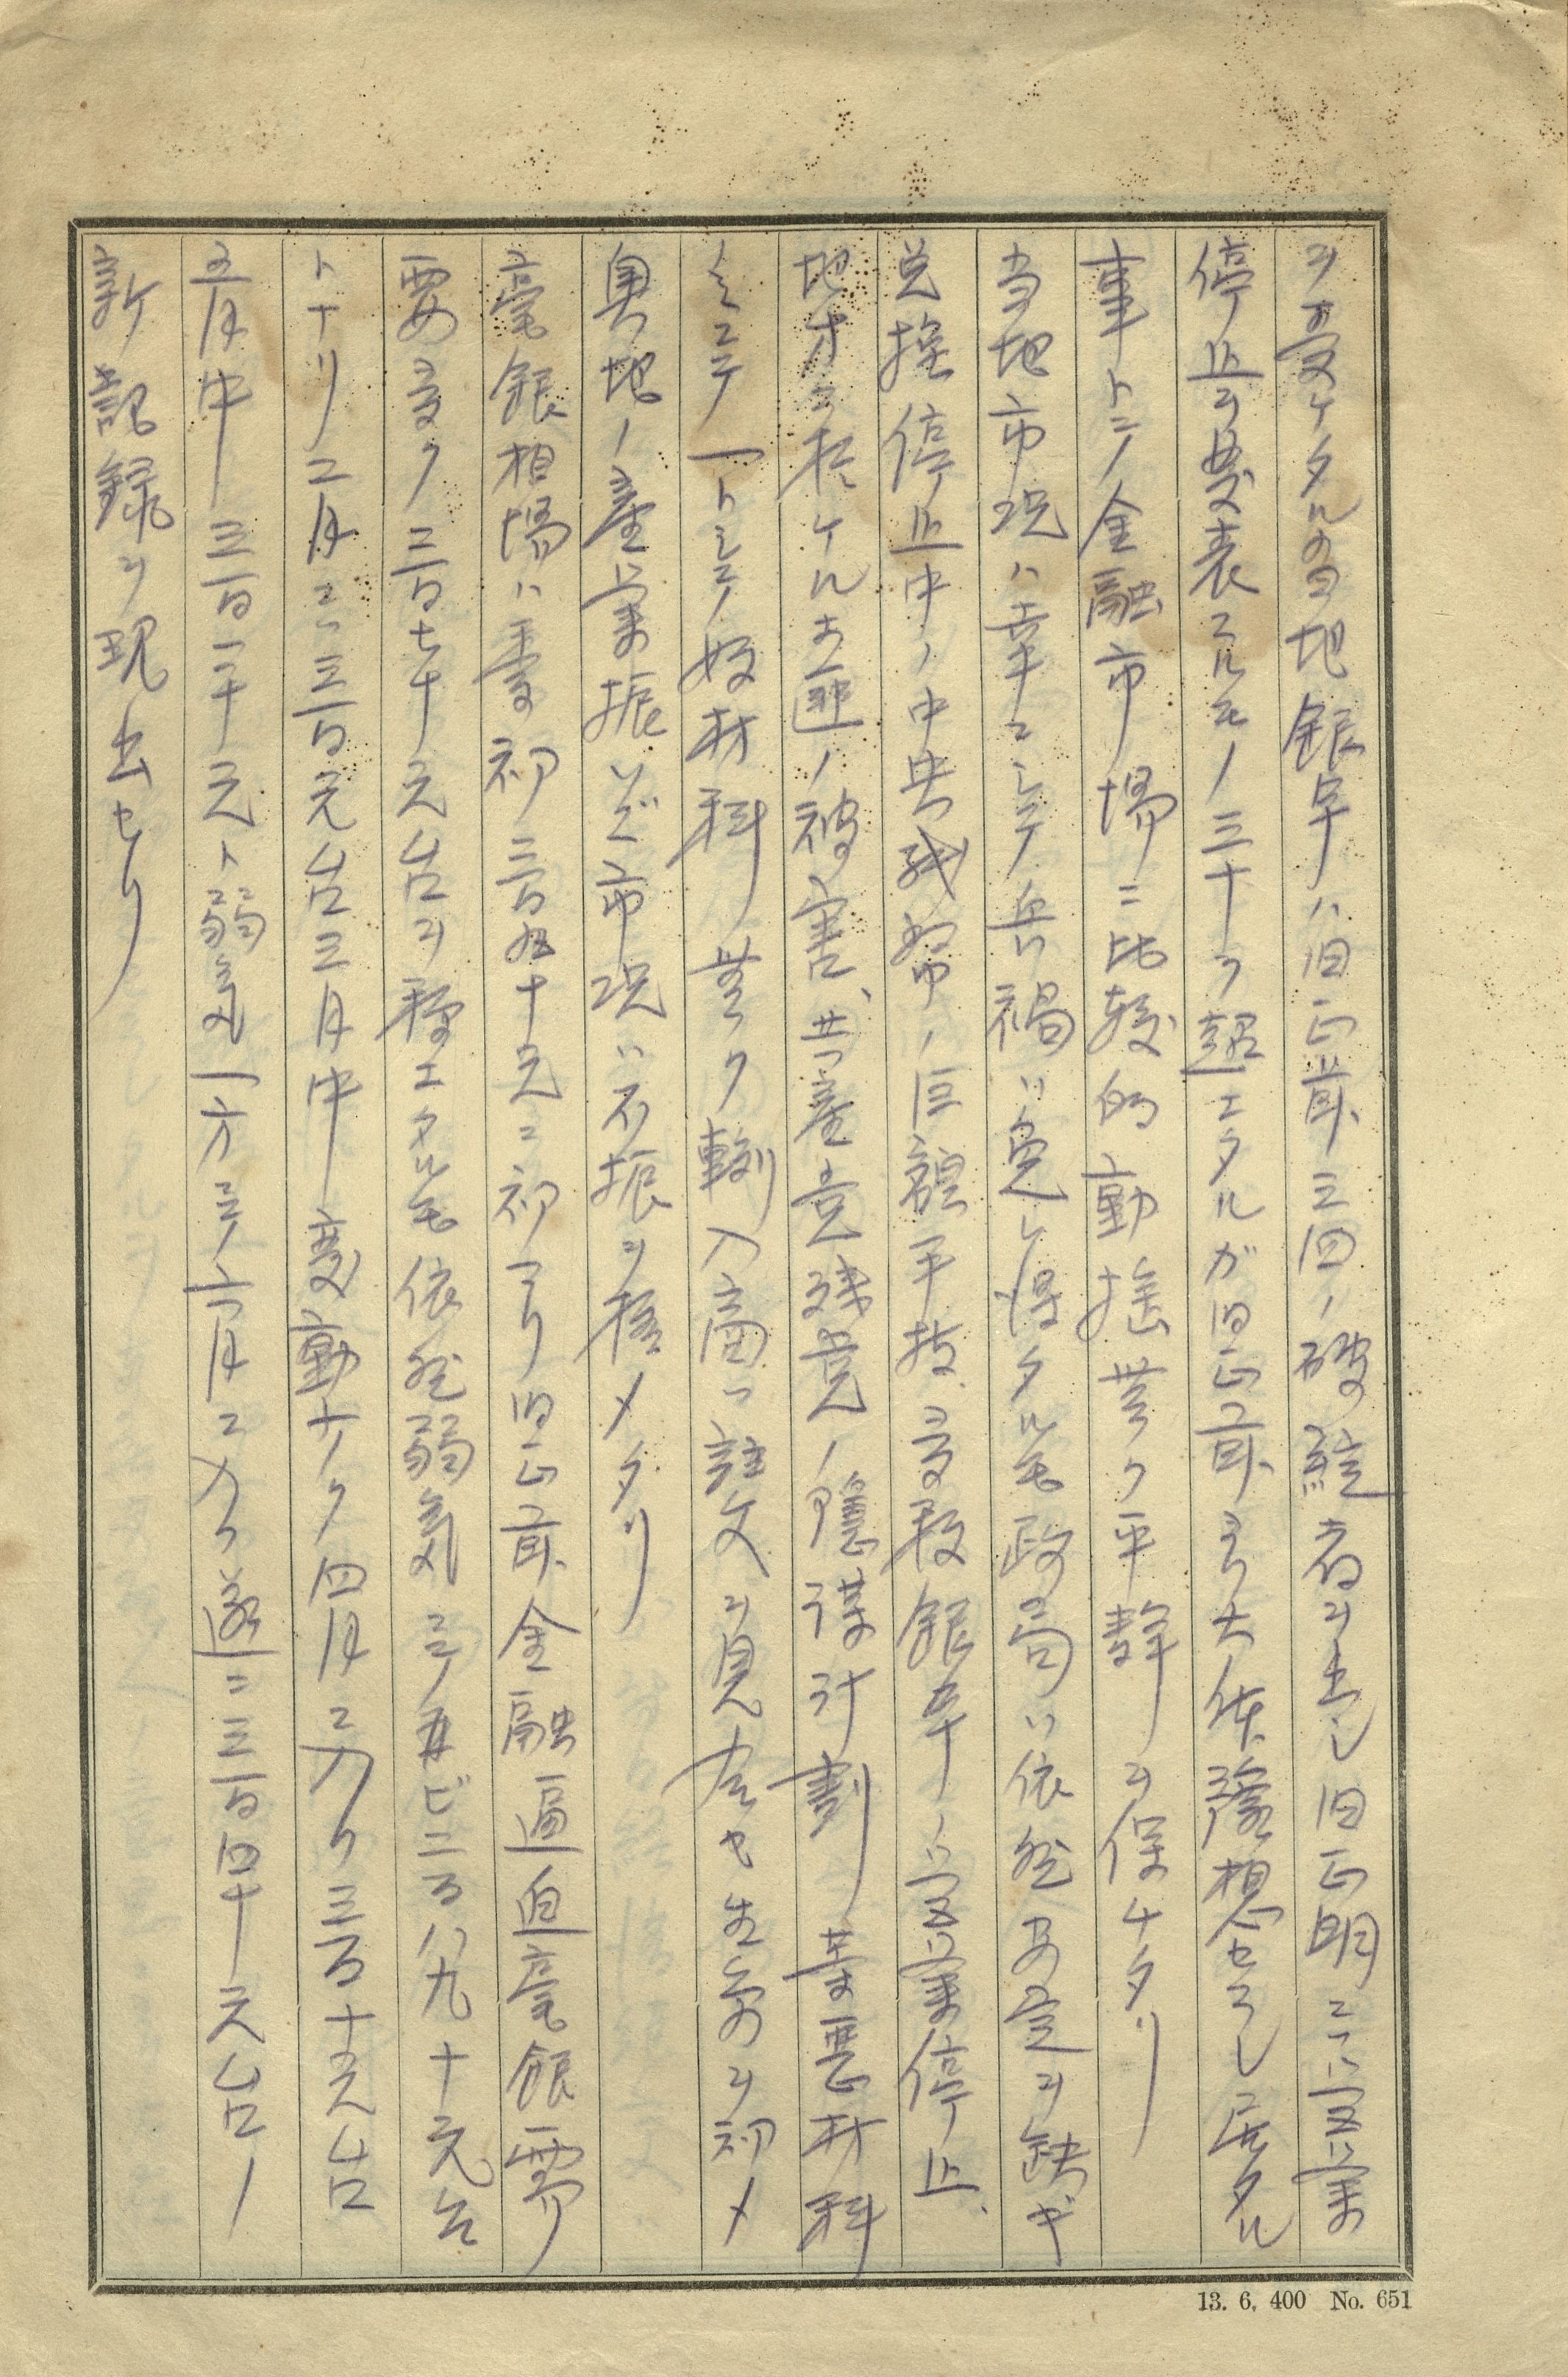 ヲ受ケタル当地銀号ハ旧正前三四ノ破綻者ヲ出シ旧正明ニハ営業
停止ヲ発表スルモノ三十ヲ超エタルガ旧正前ヨリ大体豫想セラレ居タル
事トテ金融市場ニ比較的動揺無ク平静ヲ保チタリ
当地市況ハ幸ニシテ兵禍ハ免レ得タルモ政局ハ依然安定ヲ缺ギ
兌換停止中ノ中央紙幣ノ巨額平技、多数銀号ノ営業停止、
地方ニ於ケル土匪ノ被害、共産党残党ノ隠謀計劃等悪材料
ノミニテ一トシテ好材料無ク輸入商ハ註文ヲ見合セ生氣ヲ初メ
奥地ノ産業振ハズ市況ハ不振ヲ極メタリ
毫銀相場ハ季初三百五十元ニ初マリ旧正前金融逼迫毫銀需
要多ク三百七十元台ヲ稱エタルモ依然弱気ニテ再ビ二百八九十元台
トナリ二月ニハ三百元台三月中変動ナク四月ニ入リ三百十元台
五月中三百二十元ト弱気一方ニテ六月ニ入リ遂ニ三百四十元台ノ
新記録ヲ現出セリ
13. 6. 400 No. 651